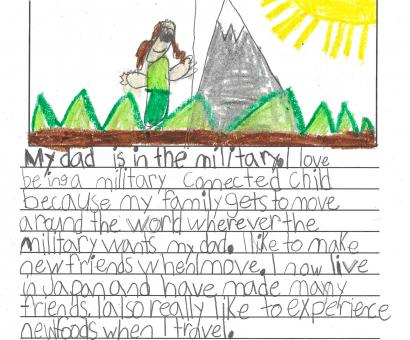 My dad is in the military. I love
being a military connected child
because my family gets to move
around the world wherever the
military wants my dad. I like to make
new friends when I move. I now live
in Japan and have made many
friends. I also really like to experience
new foods when I travel.